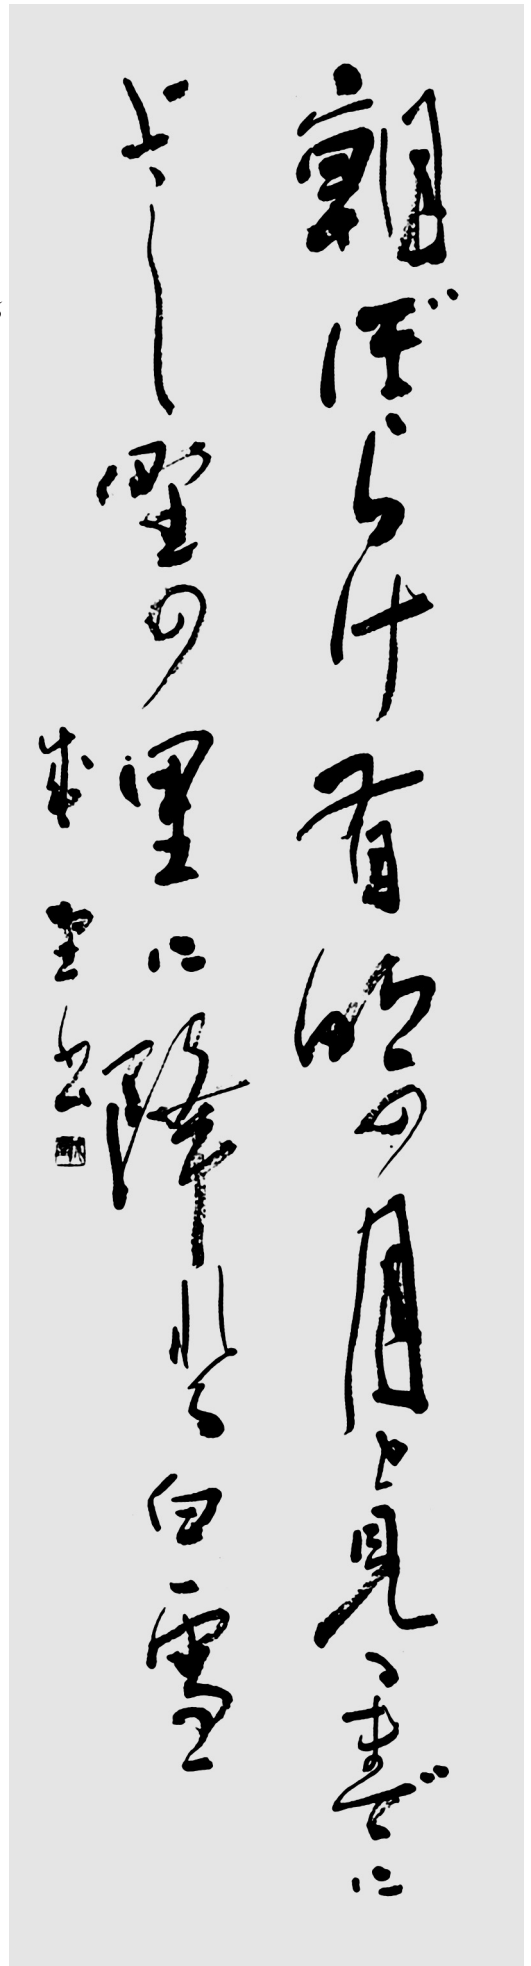 朝ぼらけ有明の月と見るまでに
よし野の里に降れる白雪